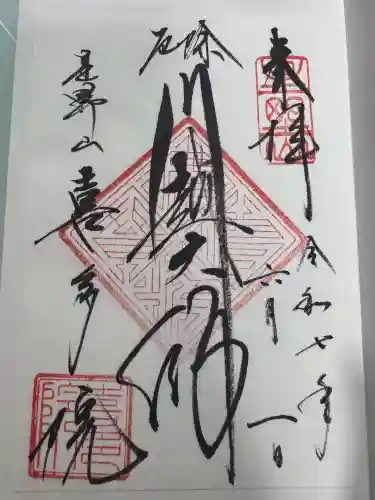 奉拝
令和七年
六月一日
厄除
川越大師
星野山 喜多院